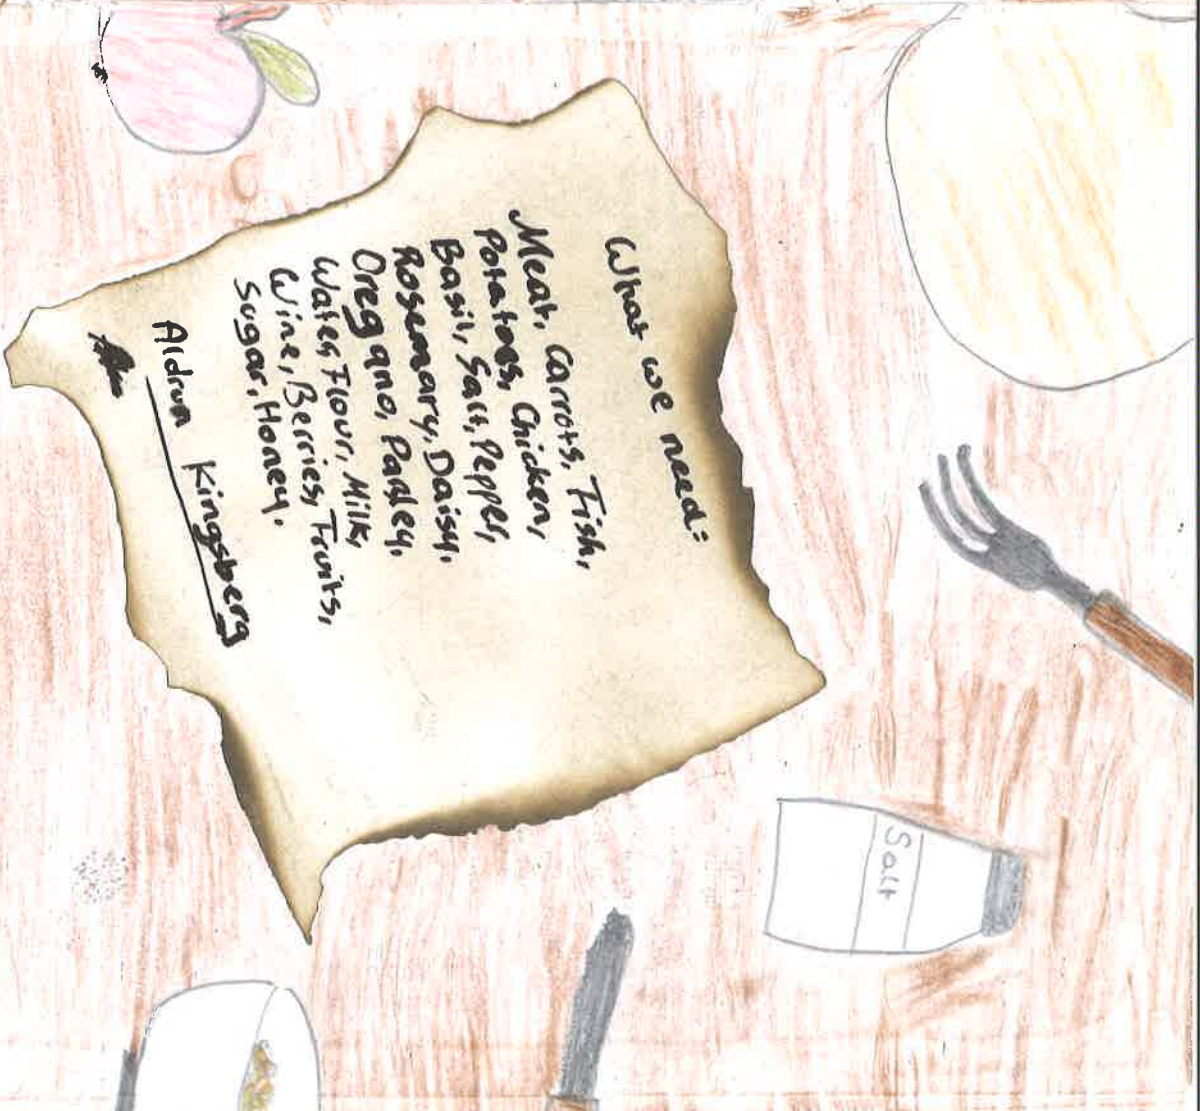 What we need:
Meat, Carrots, Fish,
Potatoes, Chicken,
Basil, Salt, Pepper,
Rosemary, Daisy,
Oregano, Parsley,
Water, Flour, Milk,
Wine, Berries, Fruits,
Sugar, Honey.
Aldrun Kingsberg
Salt